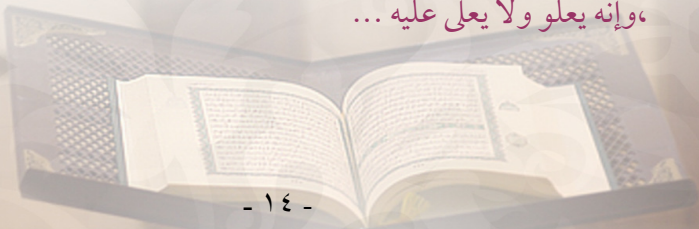 ،وإنه يعلو ولا يعلى عليه ...
- ١٤ -